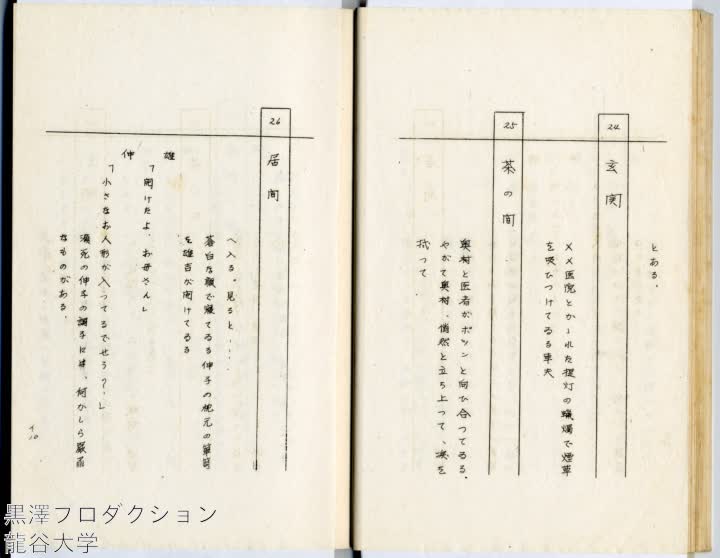 とある。
24
玄関
××医院とかゝれた提灯の蝋燭で煙草
を吸ひつけてゐる車夫
25
茶の間
奥村と医者がポツンと向ひ合つてゐる。
やがて奥村、悄然と立ち上つて、涙を
拭つて
26
居間
へ入る。見ると‥‥
蒼白な顔で寝てゐる伸子の枕元の箪笥
を雄吉が開けてゐる
雄「開けたよ、お母さん」
伸「小さなお人形が入つてるでせう？」
瀕死の伸子の調子には、何かしら厳粛
なものがある。
黒澤プロダクション
龍谷大学